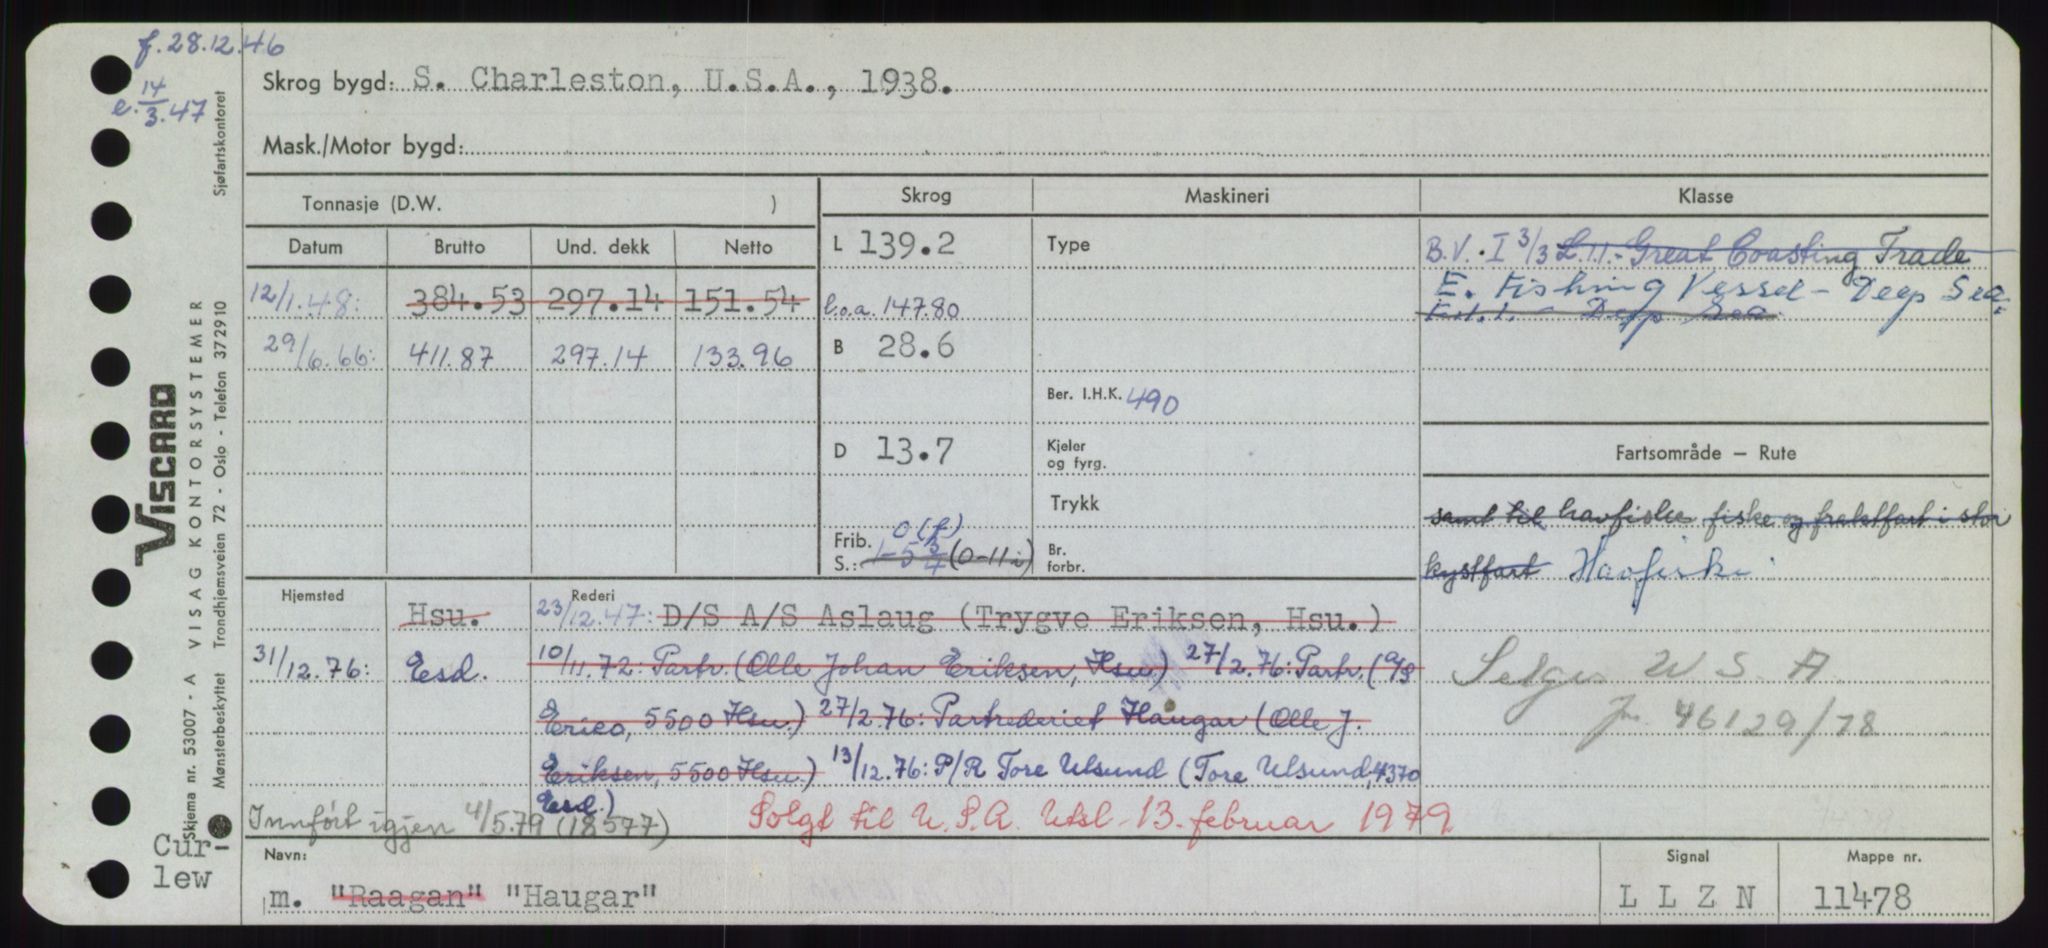 f. 28.12.46
e. 14/3.47
Skrog bygd: S. Charleston, U.S.A., 1938.
Mask./Motor bygd:
Tonnasje (D.W. )
Skrog
Maskineri
Klasse
Datum Brutto Und. dekk Netto
12/1.48: 384.53 297.14 151.54
29/6.66: 411.87 297.14 133.96
L 139.2
l.o.a. 147.80
B 28.6
D 13.7
Frib. 0 (f)
S.: 1-5 3/4 (0-11½)
Type
Ber. I.H.K. 490
Kjeler
og fyrg.
Trykk
Br.
forbr.
B.V. I 3/3 L.1.1. - Great Coasting Trade
E. Fishing Vessel - Deep Sea.
E.1.1. - Deep Sea.
Fartsområde – Rute
samt til havfiske fiske og fraktfart i stor
kystfart Havfiske
Hjemsted
Rederi
Hsu. 23/12.47: D/S A/S Aslaug (Trygve Eriksen, Hsu.)
31/12.76: Esd. 10/11.72: Partr. (Olle Johan Eriksen, Hsu.) 27/2.76: Partr. (A/S
Erico, 5500 Hsu.) 27/2.76: Partrederiet Haugar (Olle J.
Eriksen, 5500 Hsu.) 13/12.76: P/R Tore Ulsund (Tore Ulsund, 4370
Esd.)
Selges U S A
Jnr. 46129/78
Innført igjen 4/5.79 (18577)
Solgt til U.S.A. Utsl. 13. februar 1979
Navn:
m. "Raagan" "Haugar"
Signal
L L Z N
Mappe nr.
11478
Cur-
lew
VISCARD
VISAG KONTORSYSTEMER
Skjema nr. 53007 - A
Mønsterbeskyttet
Trondhjemsveien 72 - Oslo - Telefon 372910
Sjøfartskontoret